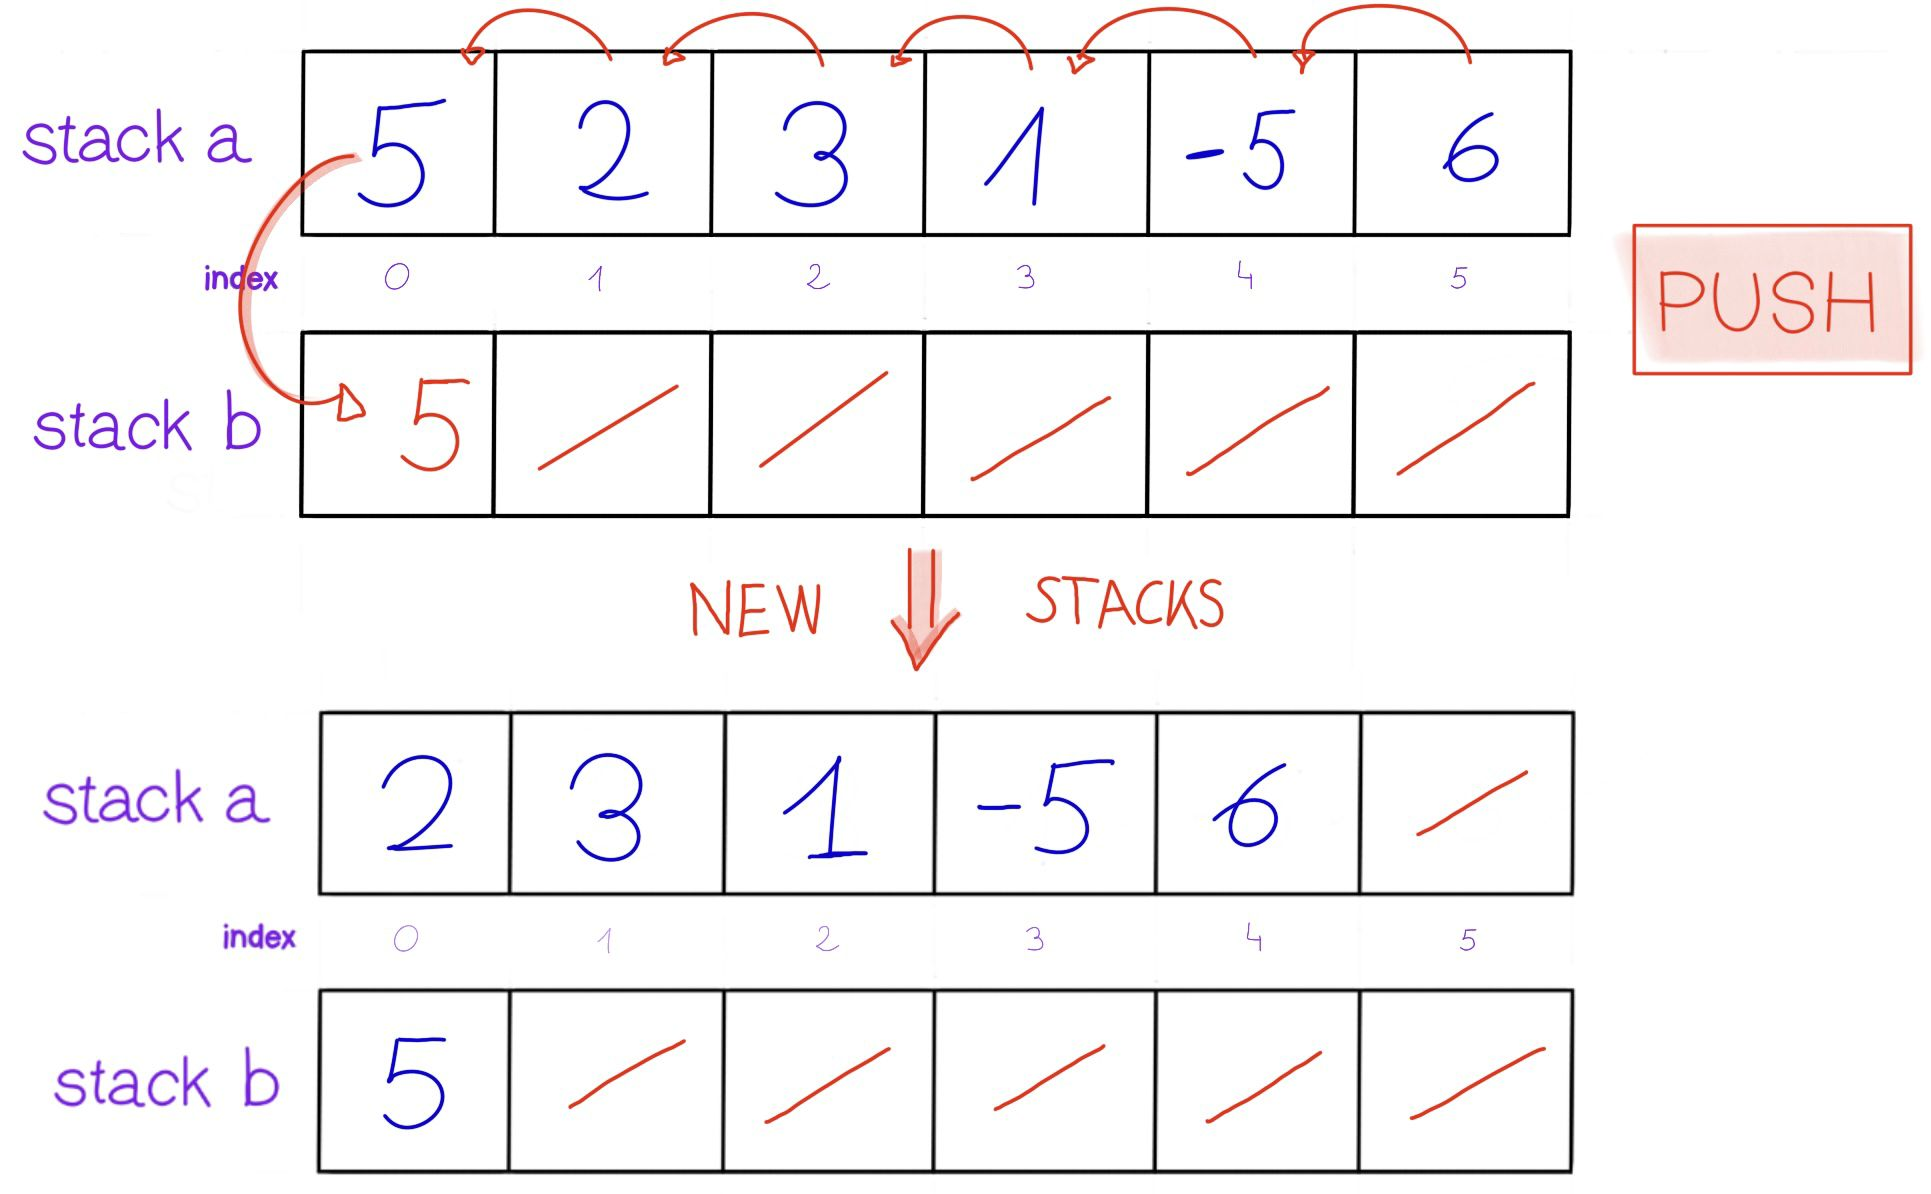 stack a 5 2 3 1 -5 6
index 0 1 2 3 4 5
PUSH
stack b 5
NEW STACKS
stack a 2 3 1 -5 6
index 0 1 2 3 4 5
stack b 5